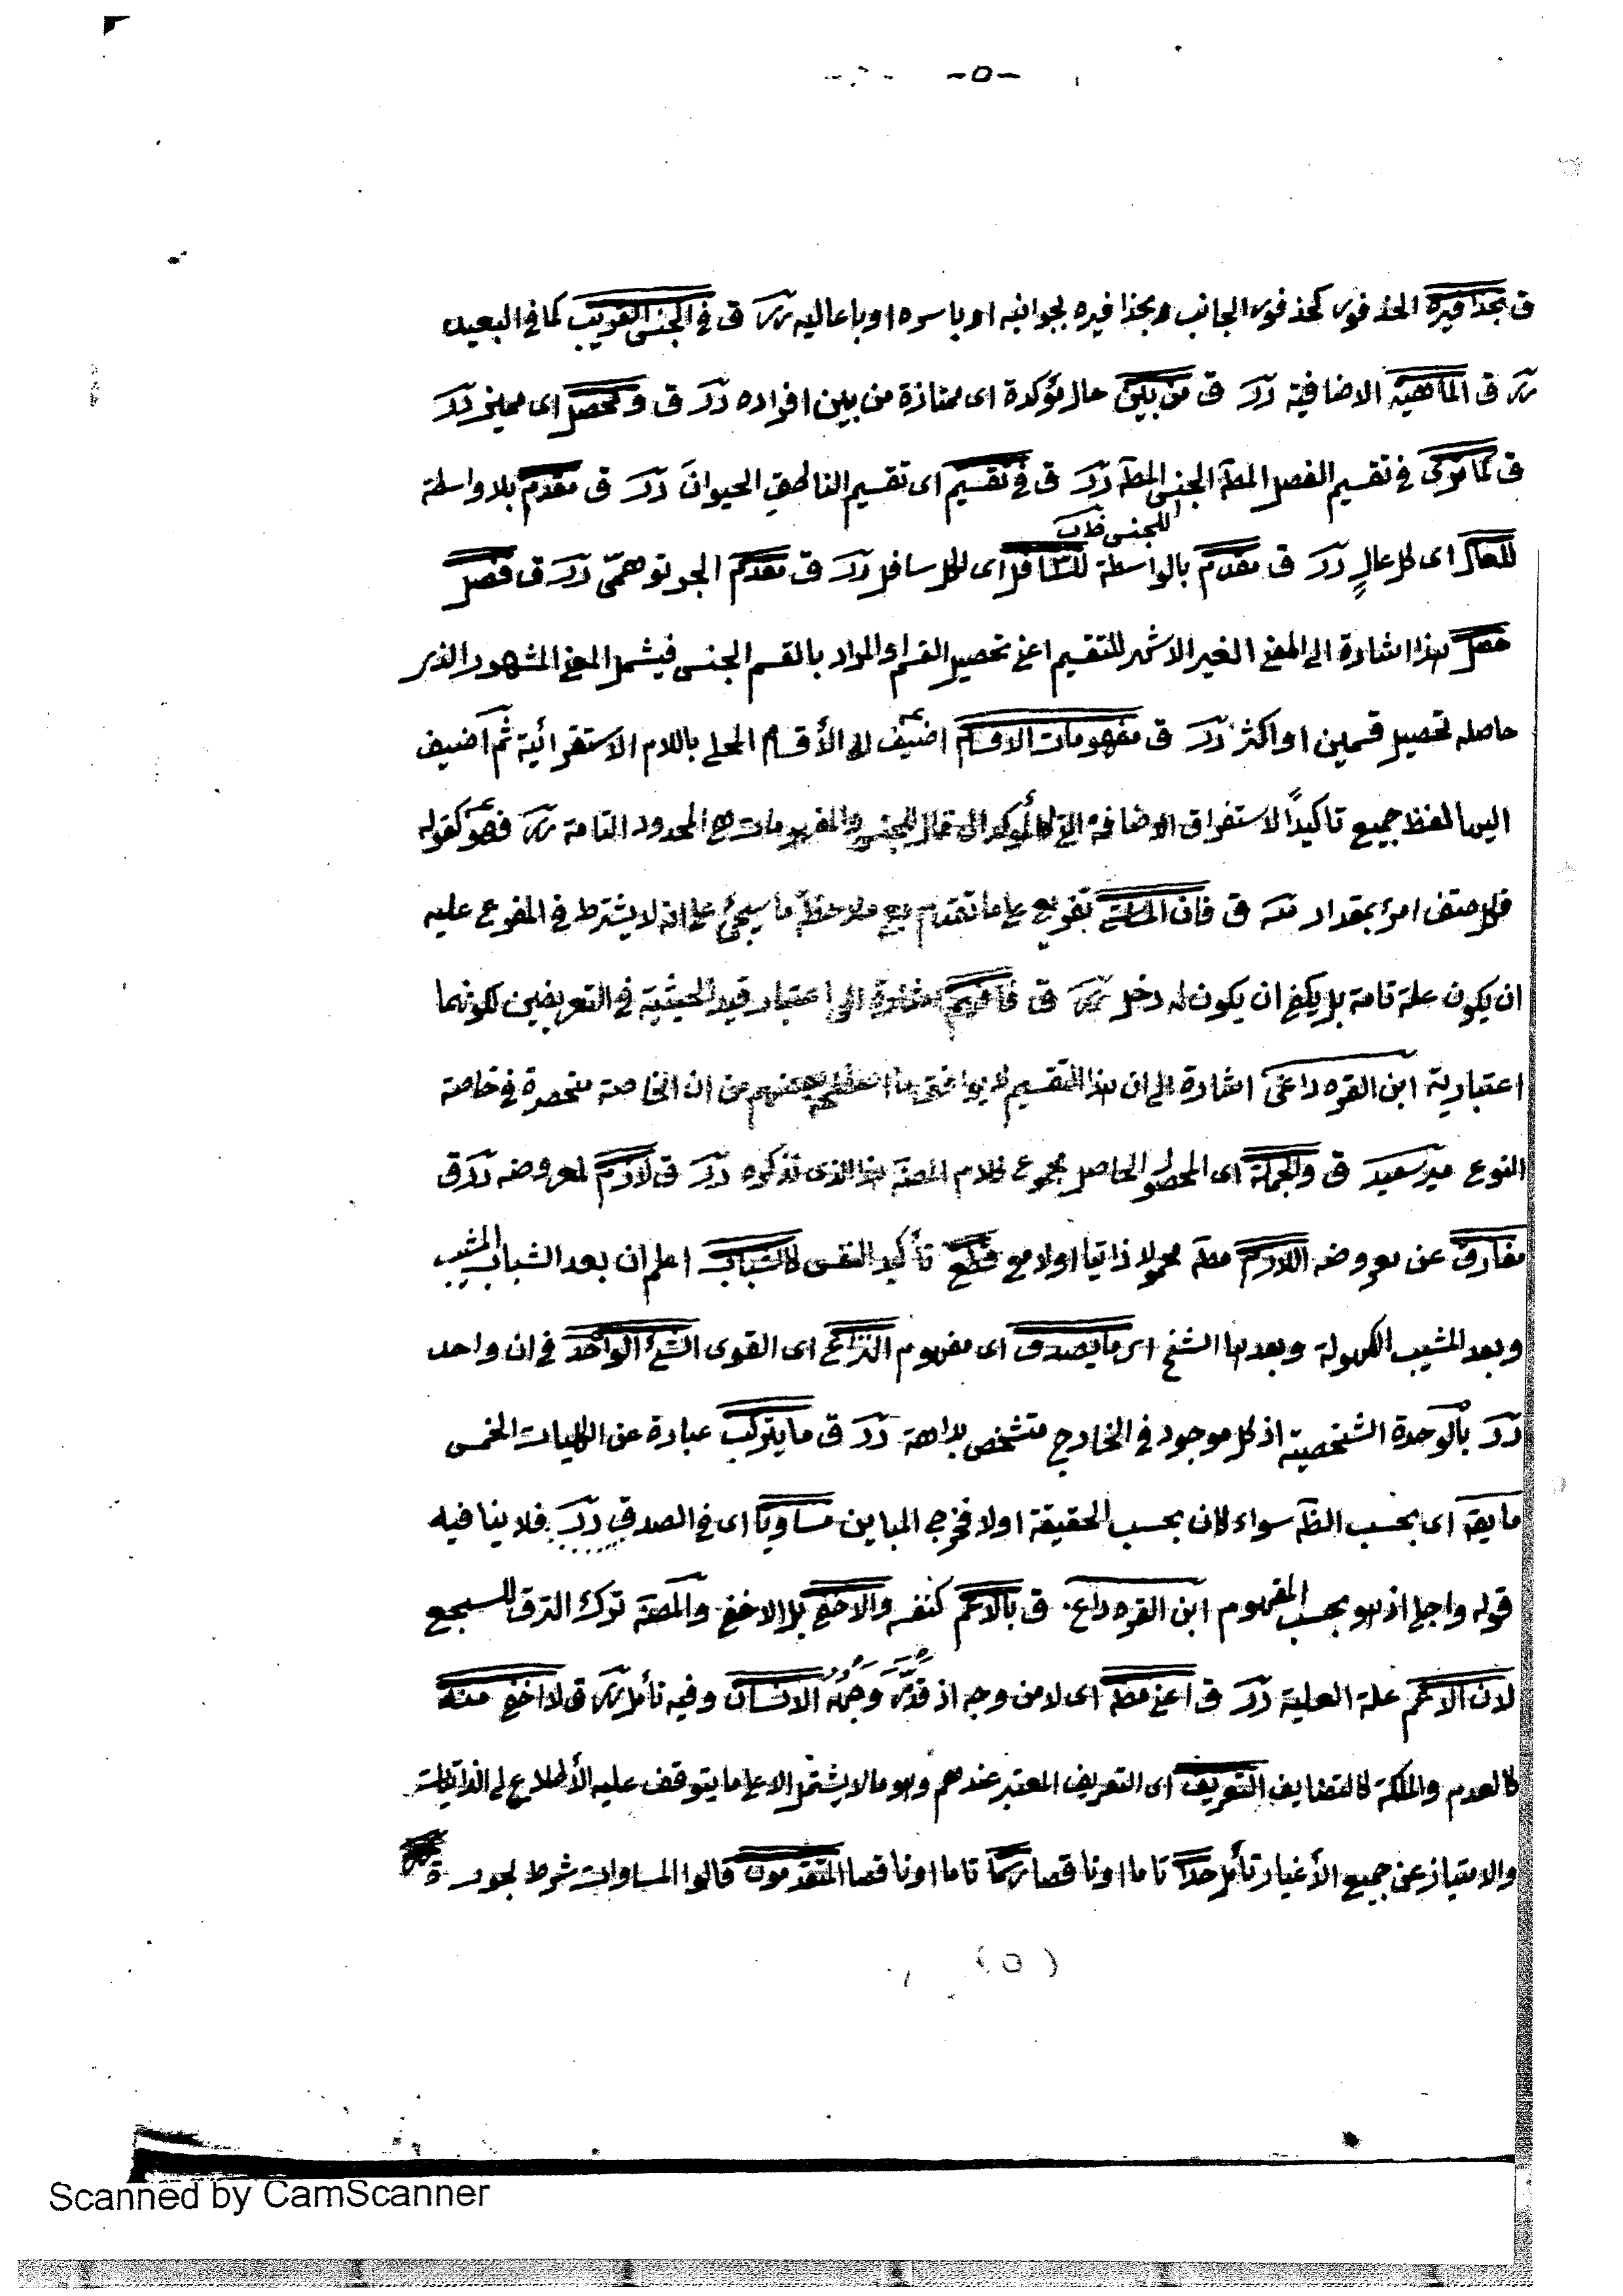 -٥-
ق بحذافيره الحذفور كحذفور الجانب وبحذافيره بجوانبه او باسره او باعاليه ق في الجنس القريب كما في البعيد
ق الماهية الاضافية ق من بين حال مؤكدة اى ممتازة من بين افراده ق ومحصل اى مميز
ق كما ترى في تقسيم الفصل المط الجنس المط ق في تقسيم اى تقسيم الناطق الحيوان ق مقدم بلا واسطة
للجنس
للعال اى لكل عالٍ ق مقدم بالواسطة للسافل اى لكل سافل ق مقدم الجر توهمّى ق فصل
فصل هذا اشارة الى المعنى الغير الاشهر للتقسيم اعنى تحصيل القسم والمراد بالقسم الجنس فيشمل المعنى المشهور الذى
حاصله تحصيل قسمين او اكثر ق مفهومات الاقسام اضيف الى الأقسام المحلى باللام الاستغراقية ثم اضيف
اليها لفظ جميع تاكيداً لاستغراق الاضافة والمفهومات هى الحدود التامة فهو كقوله
فكل حتف امرئ بمقدار ق فان تفريع على ما تقدم مع ملاحظة ما سيجئ على انه لا يشترط في المفرع عليه
ان يكون علة تامة بل يكفى ان يكون له دخل ق فافهم اشارة الى اعتبار قيد الحيثية في التعريفين لكونهما
اعتبارية ابن القره داغى اشارة الى ان هذا التقسيم لا يوافق ما اصطلح بعضهم من ان الخاصة منحصرة في خاصة
النوع مير سعيد ق وبالجملة اى المحصول الحاصل بمجموع كلام المصنف هذا الذى نذكره ق لازم لمعروضه ق
مفارق عن معروضه اللازم مط محمولا ذاتيا اولا مع قطع تأكيد النفس كالشباب اعلم ان بعد الشباب المشيب
وبعد المشيب الكهولة وبعدها الشيخ اى ما يصدق اى مفهوم النزاع اى القوى الشئ الواحد في ان واحد
بالوحدة الشخصية اذ كل موجود في الخارج متشخص بداهة ق ما يتركب عبارة عن الكليات الخمس
ما يقة اى بحسب الظ سواء كان بحسب الحقيقة اولا فخرج المباين مساويا اى في الصدق فلا ينافيه
قوله واجلى اذ هو بحسب المفهوم ابن القره داغى ق بالاعم كنفسه والاخفى بل الاخفى والمصنف ترك الترقى للسجع
لان الاعم علة العلية ق اعنى مط اى لا من وجه اذ قد وجه الانسان وفيه تأمل ق لا اخفى منه
كالعدم والملكة كالتضايف التعريف اى التعريف المعتبر عندهم وهو ما لا يشتمل الا على ما يتوقف عليه الأطلاع على الذاتيات
والامتياز عن جميع الأغيار تأمل حدا تاما او ناقصا رسما تاما او ناقصا المتقدمون قالوا المساوات شرط لجودة
(٥)
Scanned by CamScanner